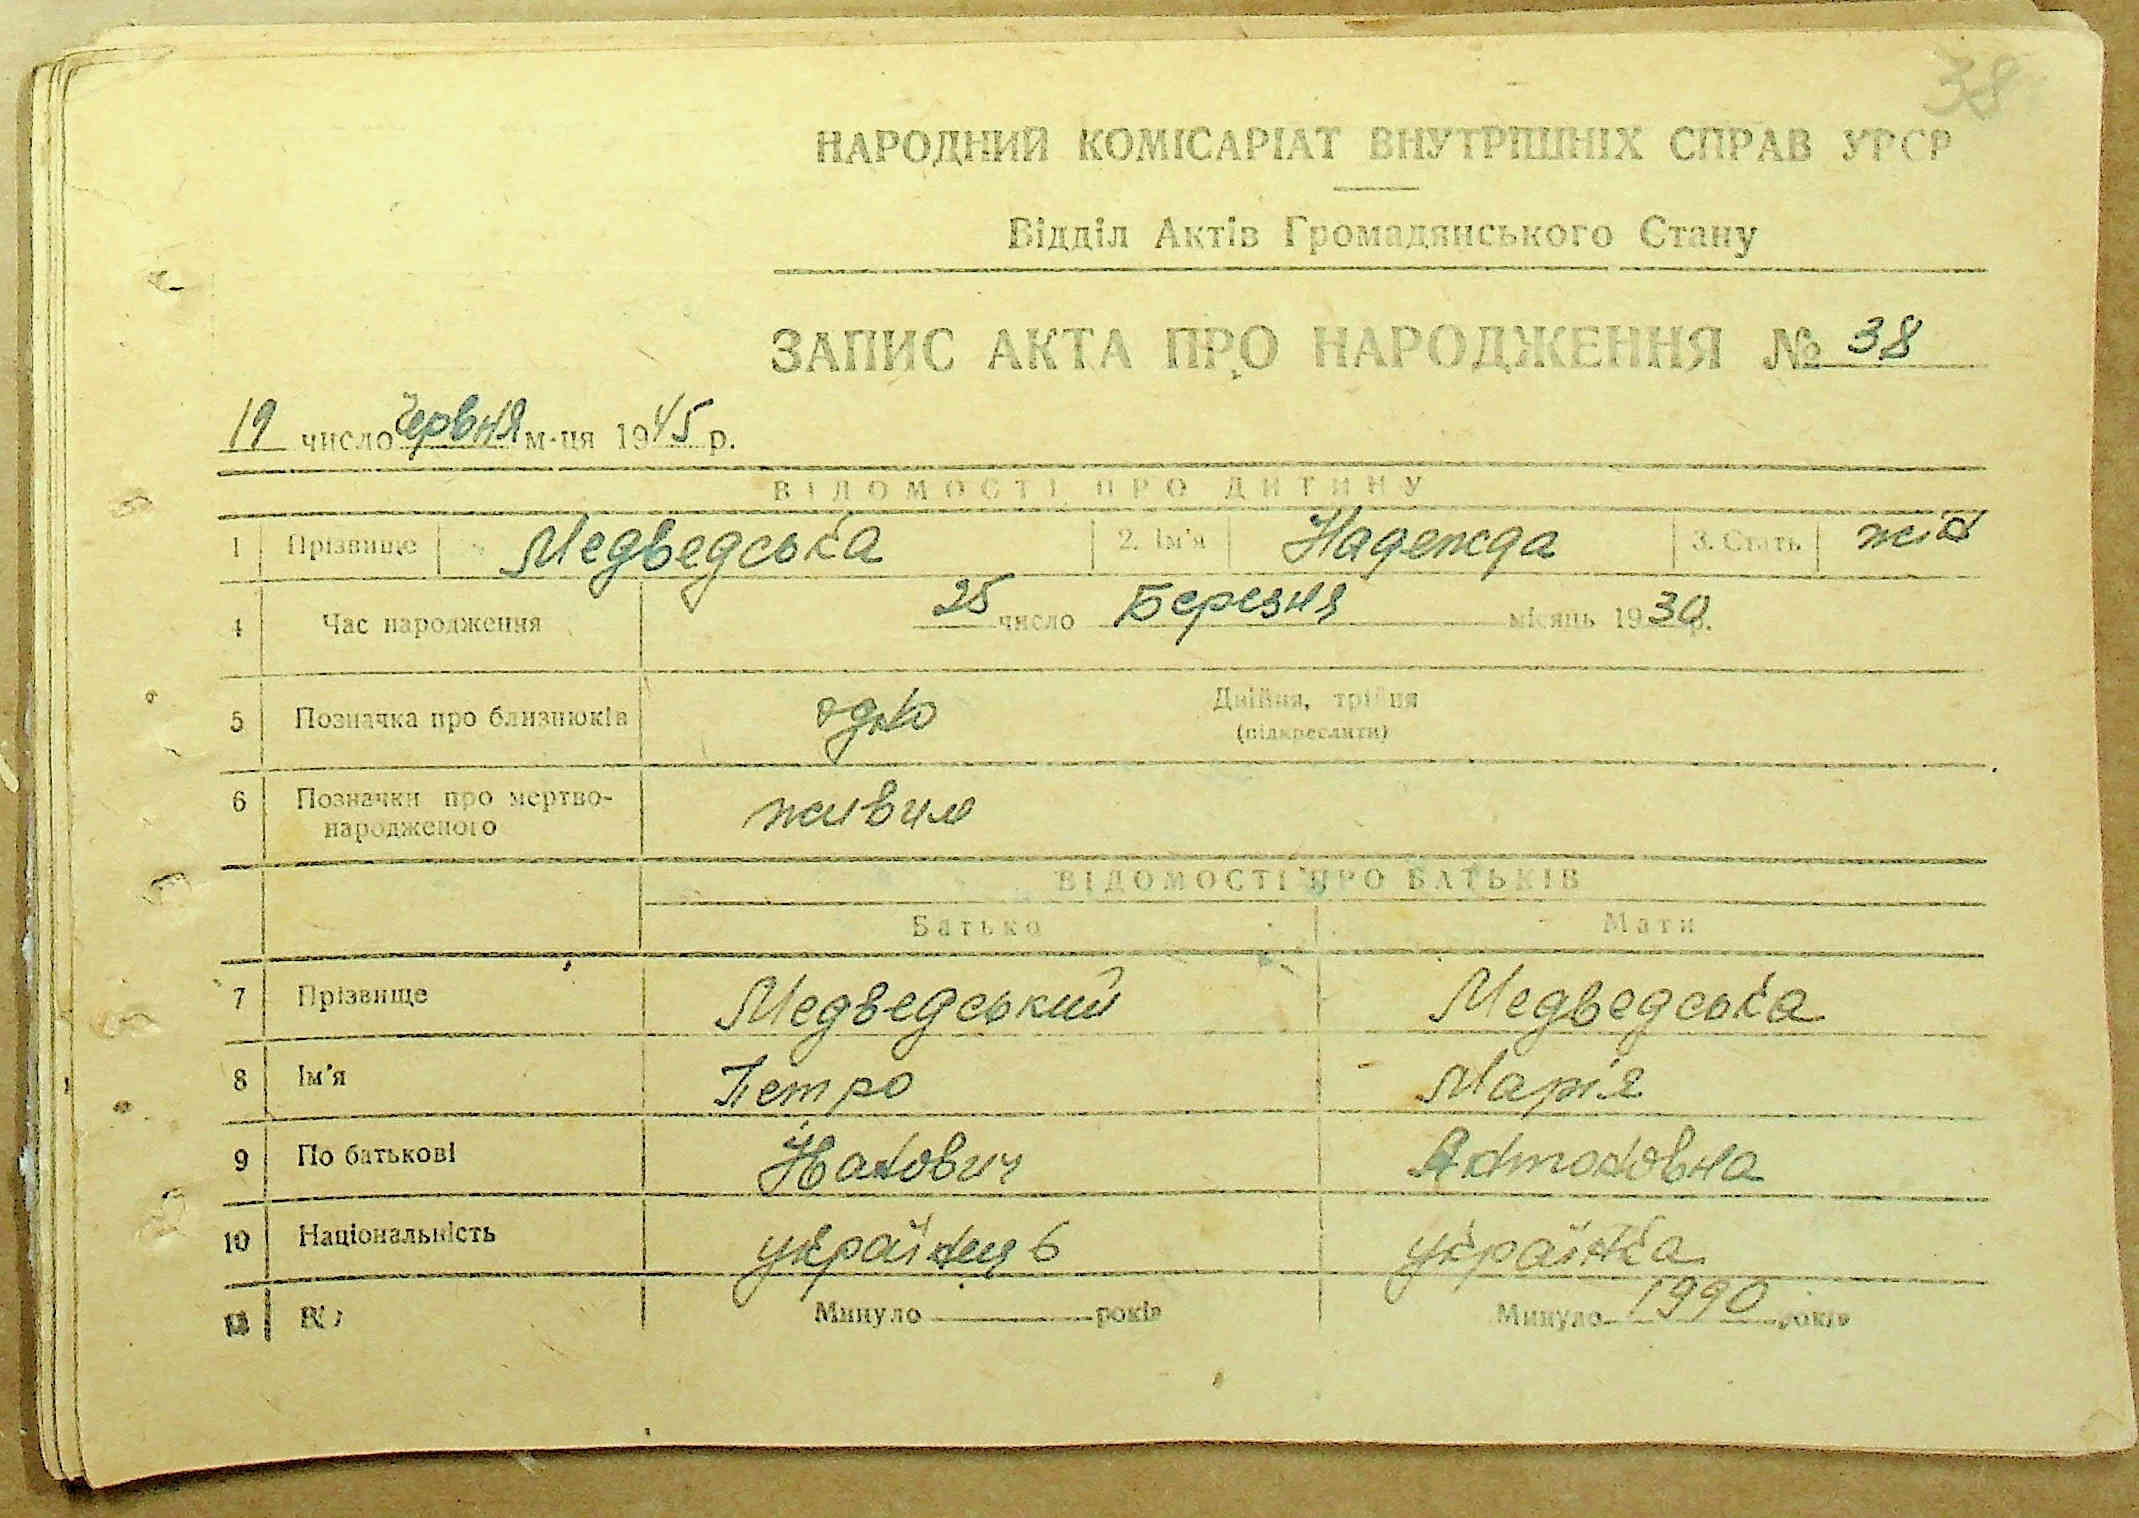 38
НАРОДНИЙ КОМІСАРІАТ ВНУТРІШНІХ СПРАВ УРСР
Відділ Актів Громадянського Стану
ЗАПИС АКТА ПРО НАРОДЖЕННЯ № 38
19 число червня м-ця 1945 р.
ВІДОМОСТІ ПРО ДИТИНУ
1 Прізвище Медведська 2. Ім'я Надежда 3. Стать жін
4 Час народження 25 число Березня місяць 1930 р.
5 Позначка про близнюків одно Двійня, трійня
(підкреслити)
6 Позначки про мертво-
народженого живим
ВІДОМОСТІ ПРО БАТЬКІВ
Батько Мати
7 Прізвище Медведський Медведська
8 Ім'я Петро Марія
9 По батькові Йванович Антоновна
10 Національність українець українка
Минуло років Минуло 1990 років